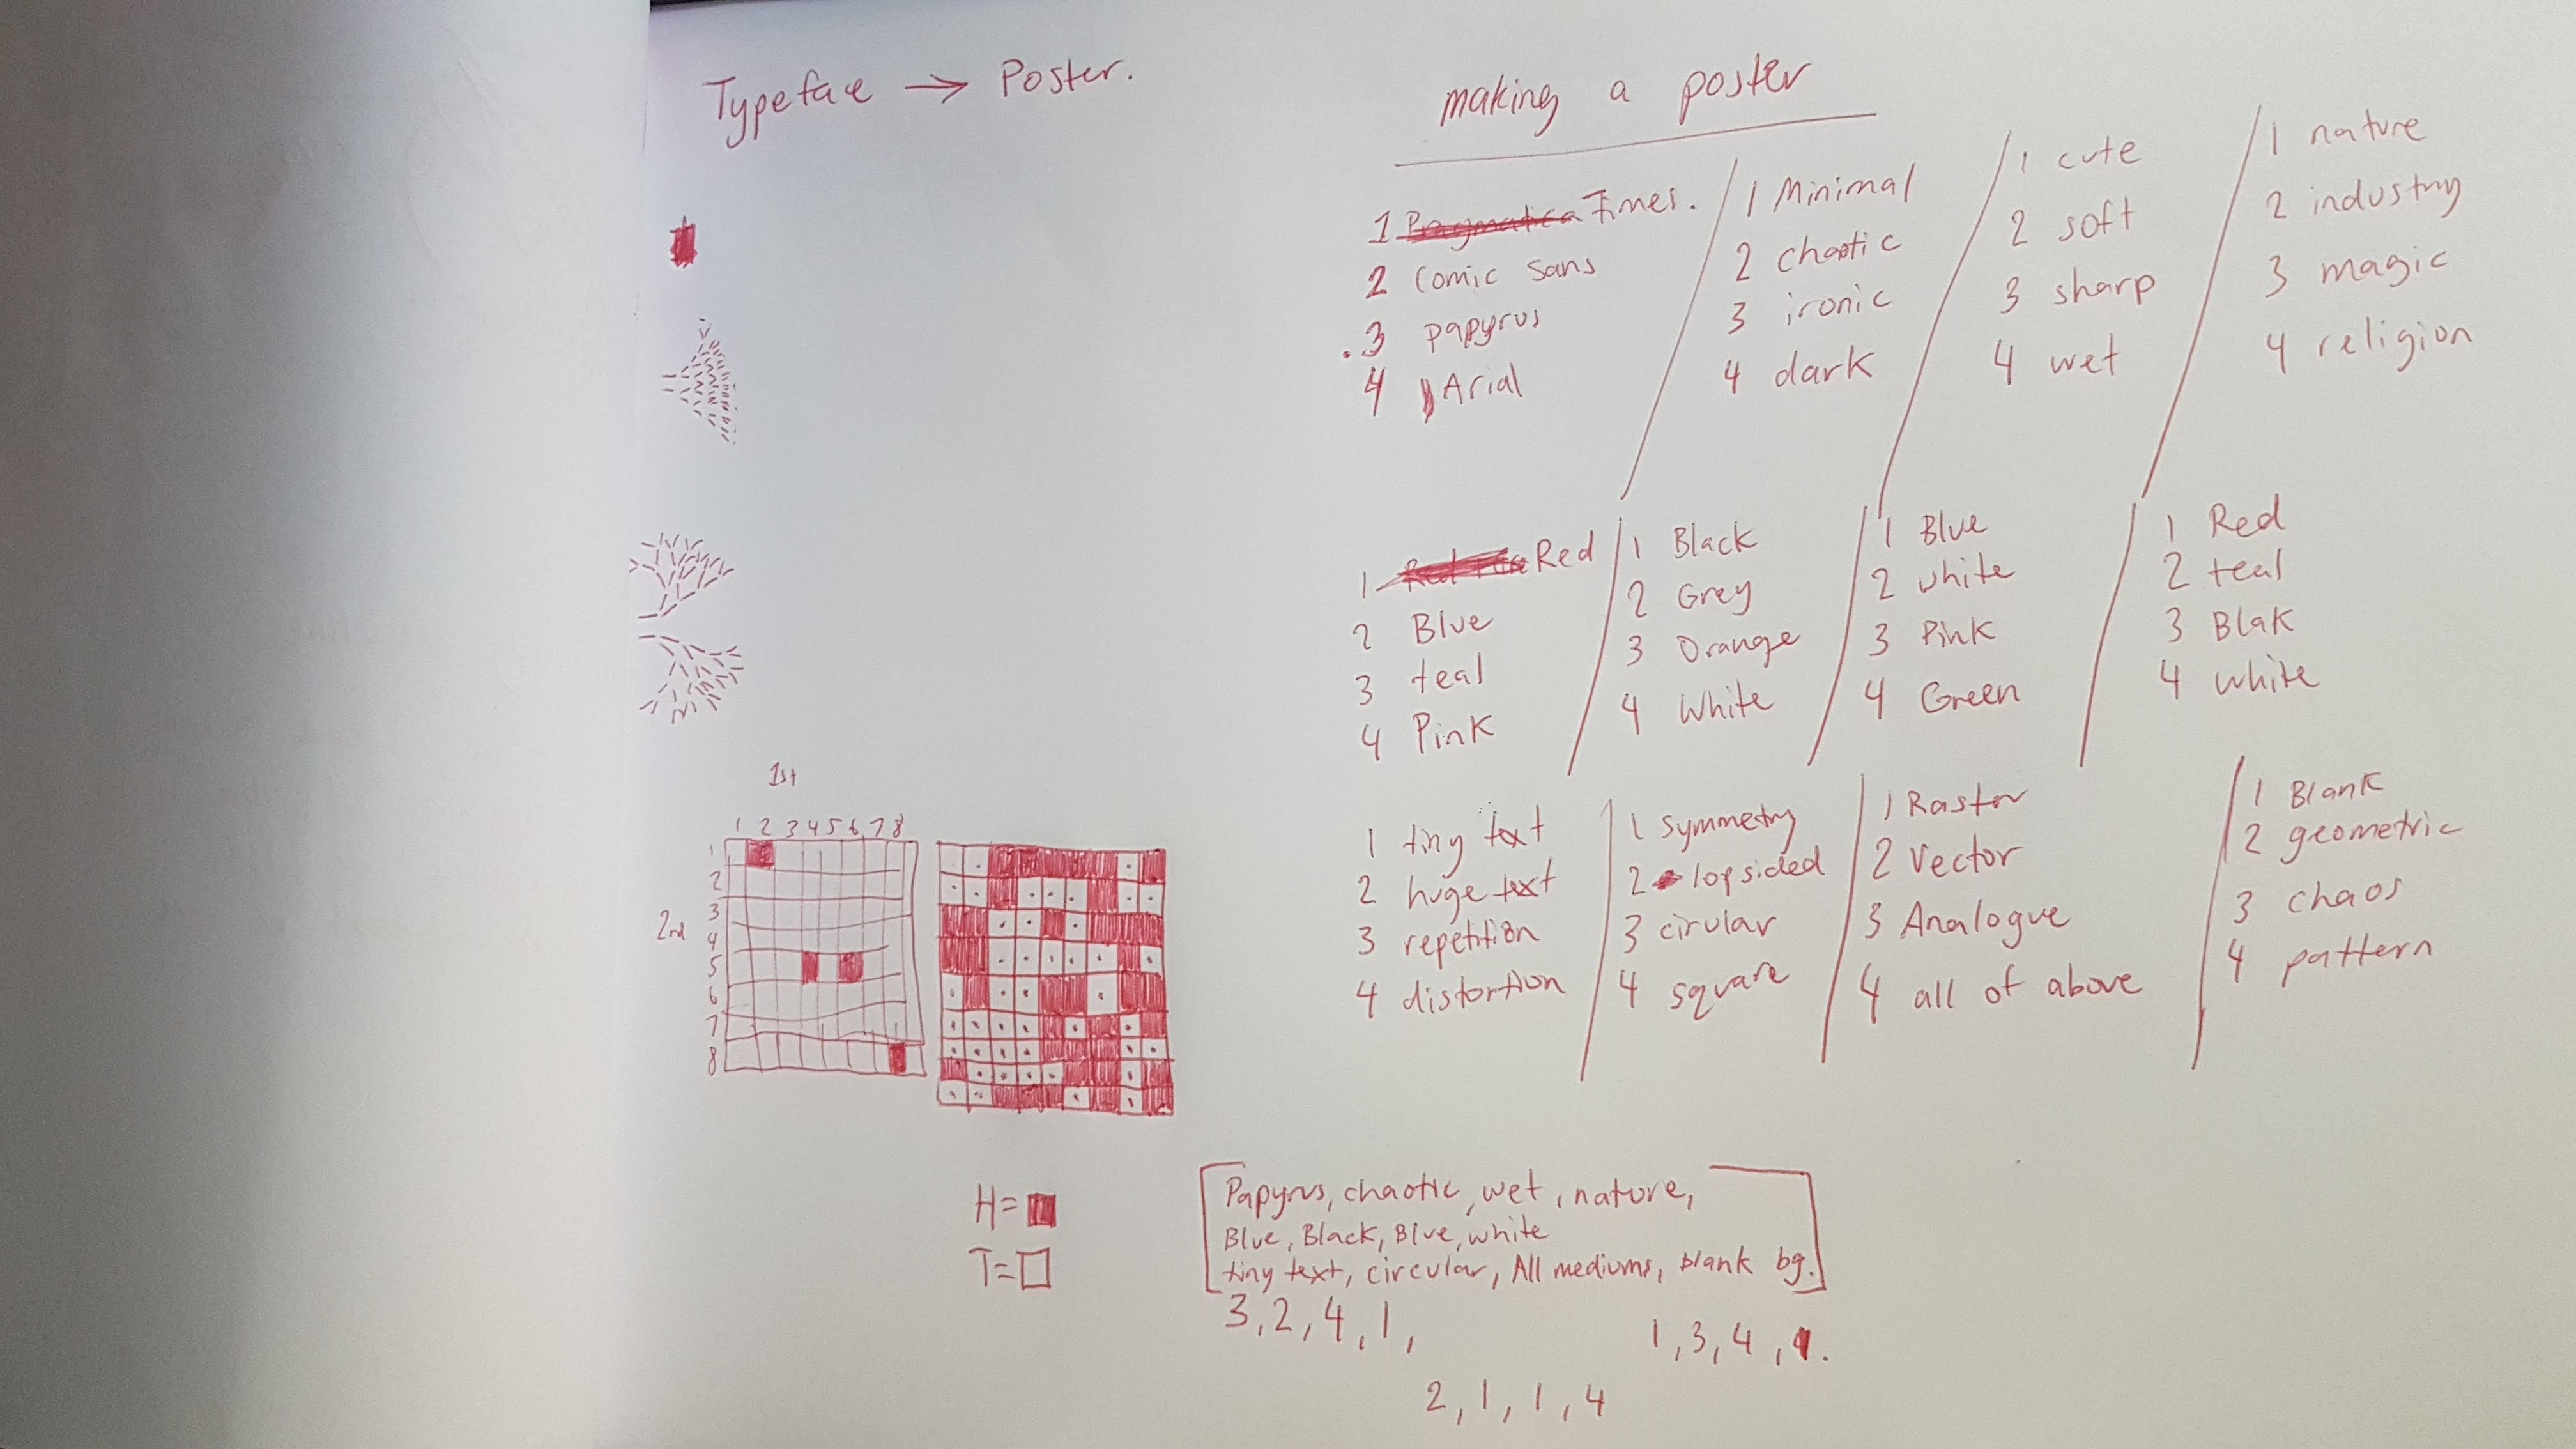 Typeface → Poster.
making a poster
1 Pragmatica Times.
2 Comic Sans
3 papyrus
4 Arial
1 Minimal
2 chaotic
3 ironic
4 dark
1 cute
2 soft
3 sharp
4 wet
1 nature
2 industry
3 magic
4 religion
1 Red
2 Blue
3 teal
4 Pink
1 Black
2 Grey
3 Orange
4 White
1 Blue
2 white
3 Pink
4 Green
1 Red
2 teal
3 Blak
4 white
1 tiny text
2 huge text
3 repetition
4 distortion
1 symmetry
2 lopsided
3 cirular
4 square
1 Rastor
2 Vector
3 Analogue
4 all of above
1 Blank
2 geometric
3 chaos
4 pattern
1st
1 2 3 4 5 6 7 8
2nd
1
2
3
4
5
6
7
8
H=
T=
Papyrus, chaotic, wet, nature,
Blue, Black, Blue, white
tiny text, circular, All mediums, blank bg.
3, 2, 4, 1,
1, 3, 4, 1.
2, 1, 1, 4